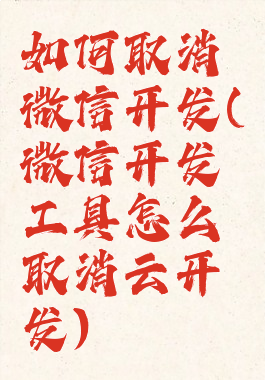 如何取消
微信开发(
微信开发
工具怎么
取消云开
发)